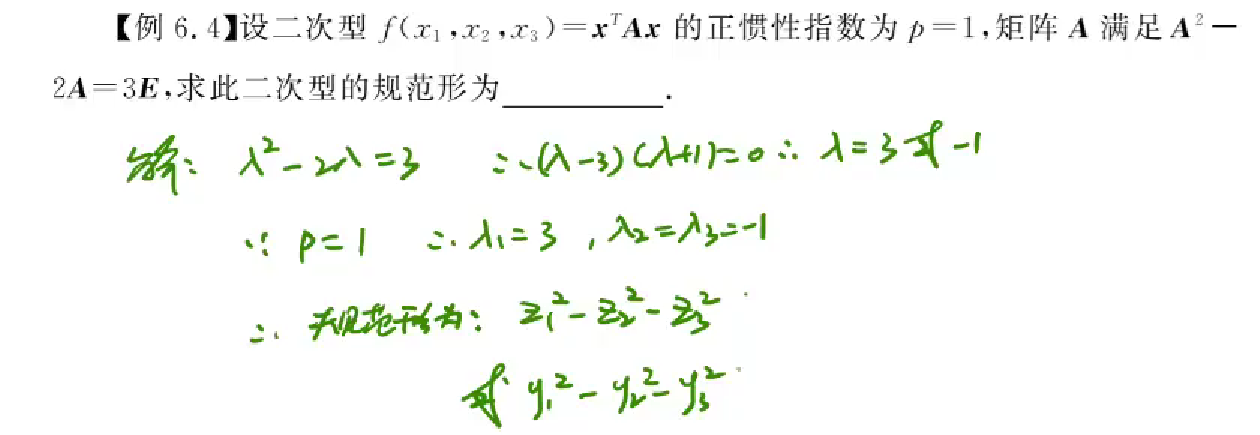 【例 6.4】设二次型 f(x₁,x₂,x₃)=xᵀAx 的正惯性指数为 p=1,矩阵 A 满足 A²－
2A=3E,求此二次型的规范形为__________.
解: λ²-2λ=3 ∴(λ-3)(λ+1)=0 ∴ λ=3 或 -1
∵ p=1 ∴ λ₁=3 , λ₂=λ₃=-1
∴ 规范形为: z₁²-z₂²-z₃²
或 y₁²-y₂²-y₃²